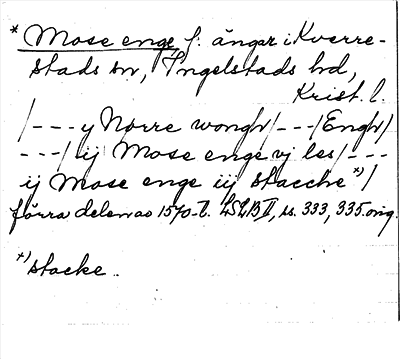 * Mose enge, f. ängar i Kverre-
stads sn, Ingelstads hd,
Krist. l.
/---y Norre wongh/---/Engh/
---/ij Mose enge vj les/---
ij Mose enge iij stacche *)/
förra delen av 1570-t. LSLB II, ss. 333, 335. orig.
*) stacke.